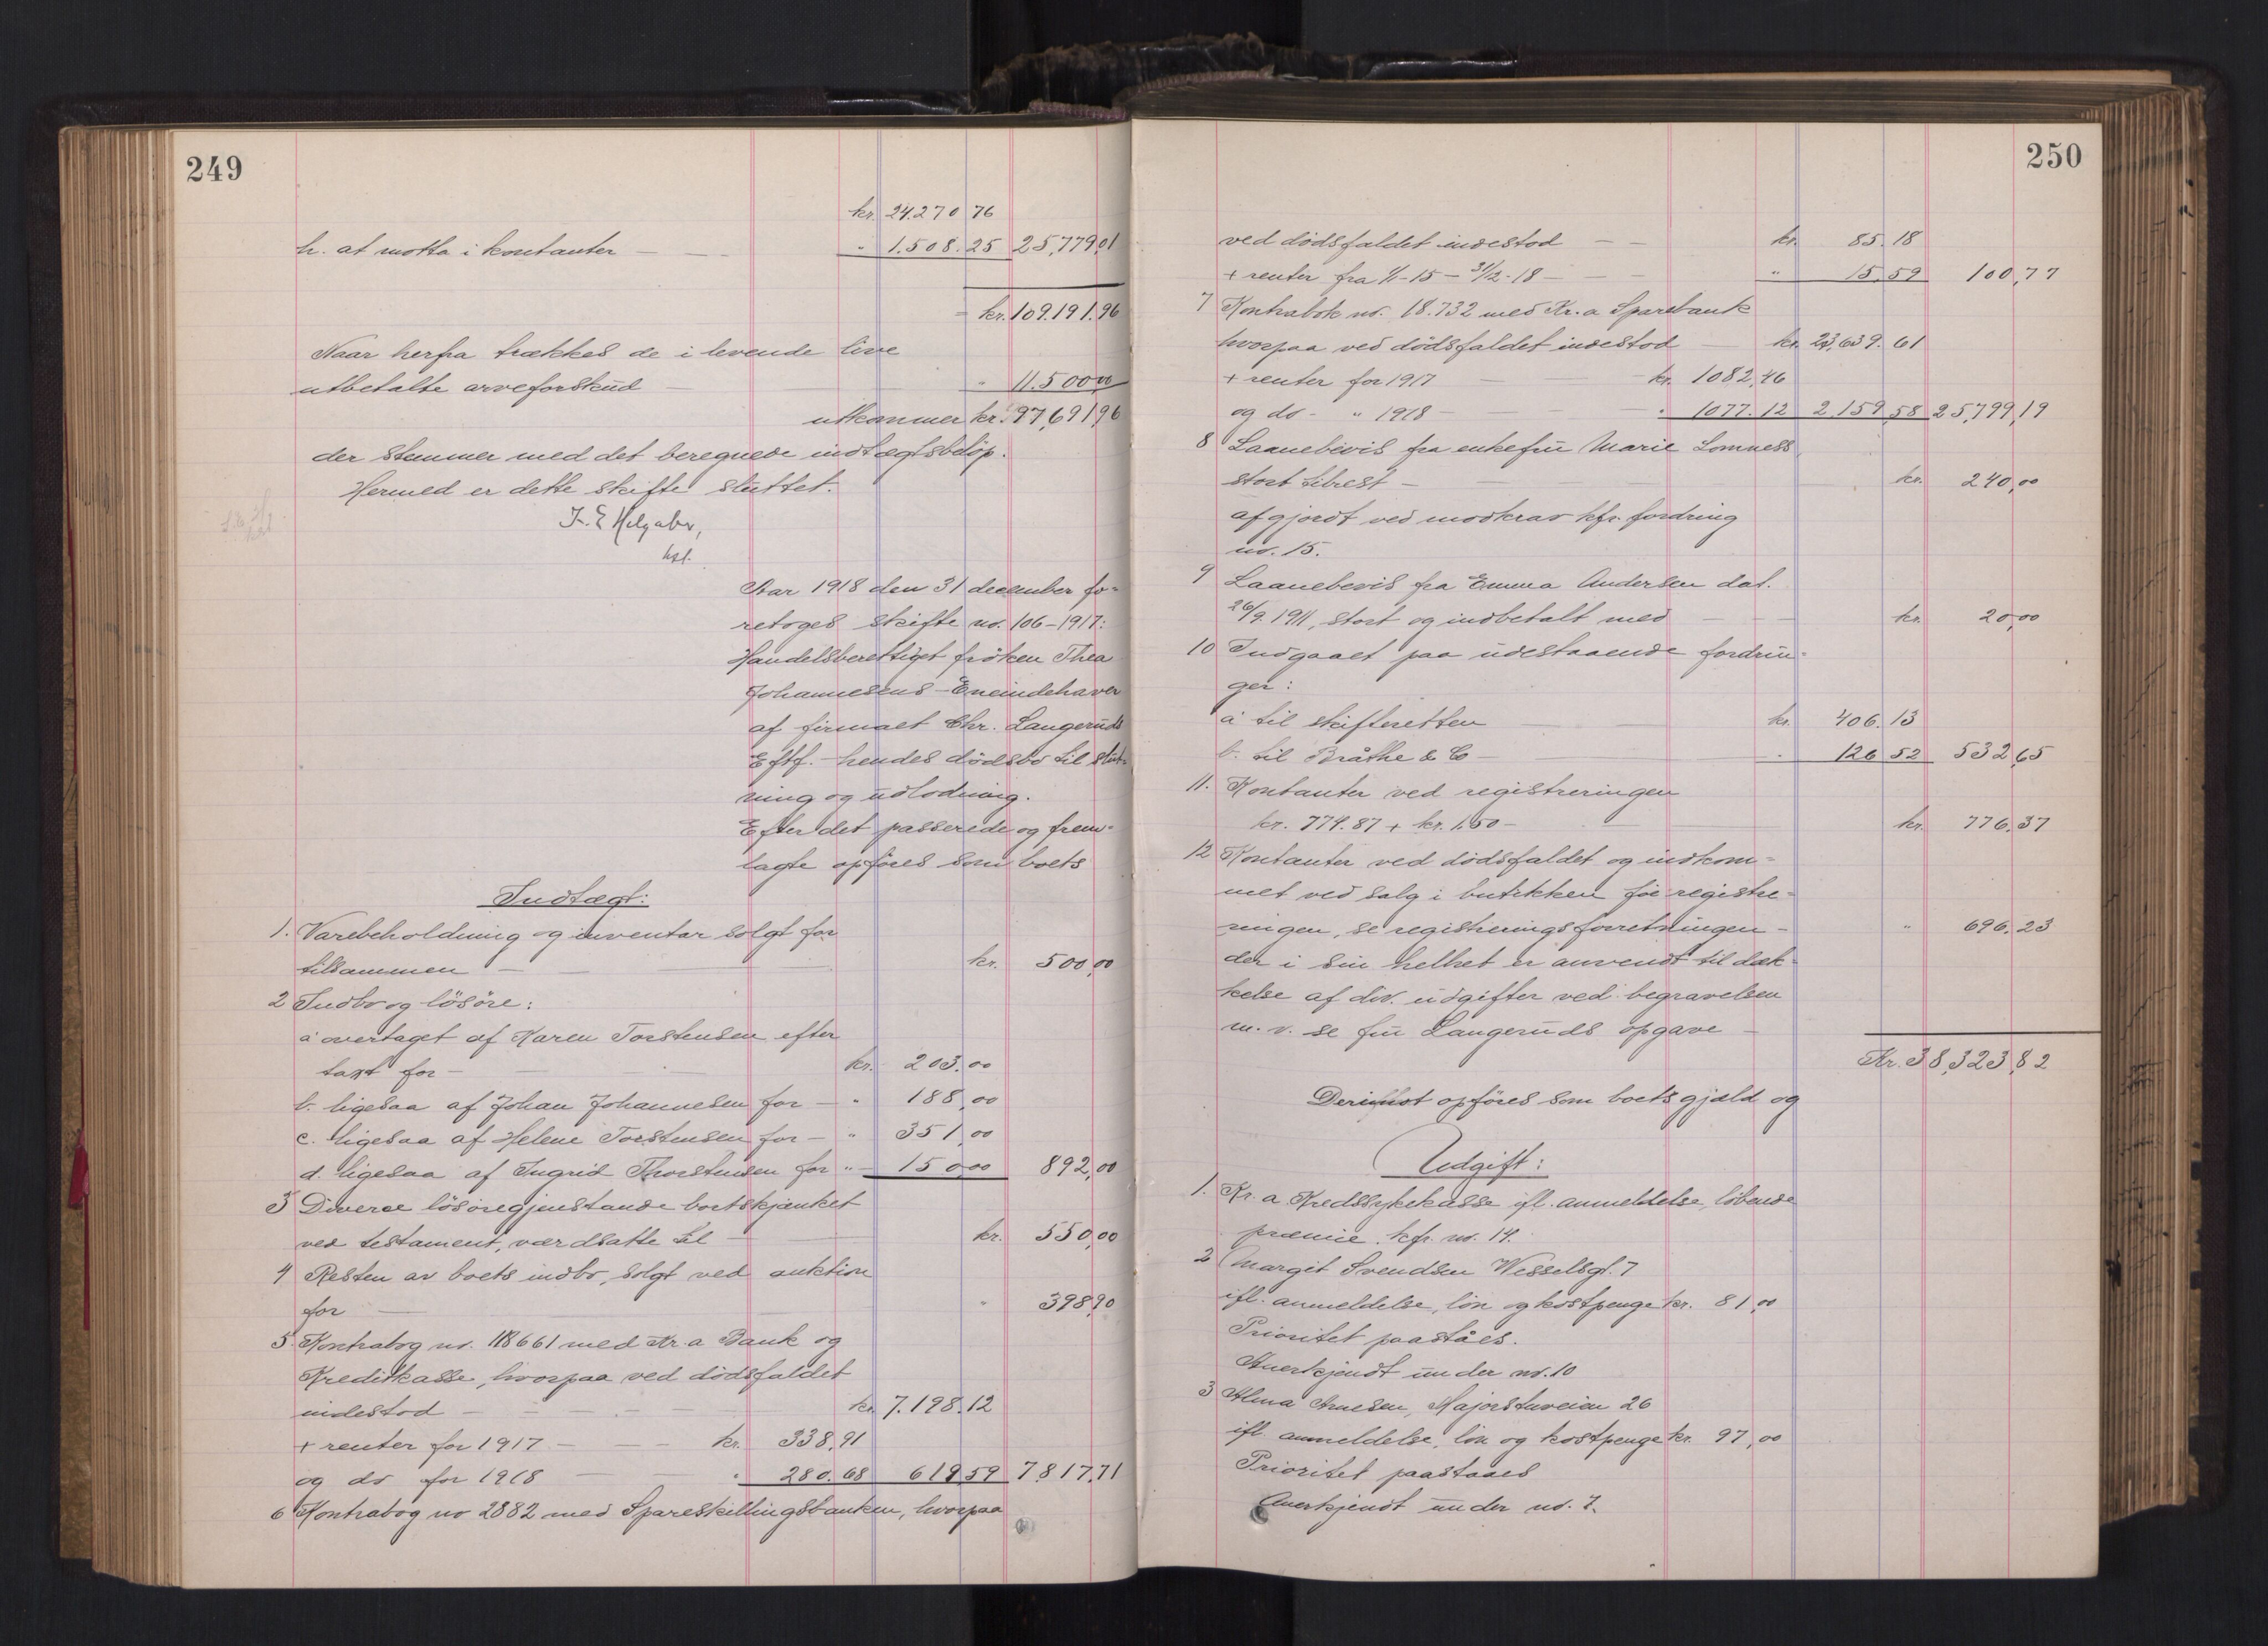 249
kr. 24.270 76
h. at motta i kontanter — — " 1.508.25 25,779,01
kr. 109.191.96
Naar herfra trækkes de i levende live
utbetalte arveforskud — " 11.500,00
utkommer kr. 97,691,96
der stemmer med det beregnede indtægtsbeløp.
Hermed er dette skifte sluttet.
Aar 1918 den 31 december fo-
retoges skifte no. 106-1917:
Handelsberettiget frøken Thea
Johannesens - Eneindehaver
af firmaet Chr. Langeruds
Eftf. - hendes dødsbo til slut-
ning og udlodning.
Efter det passerede og frem-
lagte opføres som boets
Indtægt:
1. Varebeholdning og inventar solgt for
tilsammen — kr. 500,00
2 Indbo og løsøre:
a overtaget af Karen Torstensen efter
taxt for — kr. 203,00
b. ligesaa af Johan Johannesen for — " 188,00
c. ligesaa af Helene Torstensen for — " 351,00
d. ligesaa af Ingrid Thorstensen for " 150,00 892,00
3 Diverse løsøregjenstande bortskjænket
ved testament, værdsatte til — kr. 550,00
4 Resten av boets indbo, solgt ved auktion
for — " 398,90
5. Kontrabog no. 118661 med Kr.a Bank og
Kreditkasse, hvorpaa ved dødsfaldet
indestod — kr. 7.198.12
+ renter for 1917 — kr. 338,91
og do for 1918 — " 280.68 619,59 7,817,71
6 Kontrabog no 2882 med Spareskillingsbanken, hvorpaa
250
ved dødsfaldet indestod — — kr. 85.18
+ renter fra 1/1-15 - 31/12-18 — — " 15,59 100,77
7 Kontrabok no. 18.732 med Kr.a Sparebank
hvorpaa ved dødsfaldet indestod — kr. 23,639.61
+ renter for 1917 — kr. 1082,46
og do - " 1918 — " 1077.12 2,159,58 25,799,19
8 Laanebevis fra enkefru Marie Lomness
stort tilrest — kr. 240,00
afgjordt ved modkrav kfr. fordring
no. 15.
9 Laanebevis fra Emma Andersen dat.
26/9. 1911, stort og indbetalt med — kr. 20,00
10 Indgaaet paa udestaaende fordrin-
ger:
a til skifteretten kr. 406.13
b. til Bråthe & Co — " 126 52 532,65
11. Kontanter ved registreringen
kr. 774.87 + kr. 1.50 — kr. 776,37
12 Kontanter ved dødsfaldet og indkom-
met ved salg i butikken før registre-
ringen, se registreringsforretningen — " 696.23
der i sin helhet er anvendt til dæk-
kelse af div. udgifter ved begravelsen
m. v. se fru Langeruds opgave —
Kr. 38,323,82
Derimot opføres som boets gjæld og
Udgift:
1. Kr.a Kredssykekasse ifl. anmeldelse, løbende
præmie. kfr. no. 14.
2 Margit Svendsen Wesselsgt. 7
ifl. anmeldelse, løn og kostpenge kr. 81,00
Prioritet paaståes.
Anerkjendt under no. 10
3 Alma Arnesen, Majorstuveien 26
ifl. anmeldelse, løn og kostpenge kr. 97,00
Prioritet paastaaes
Anerkjendt under no. 7.